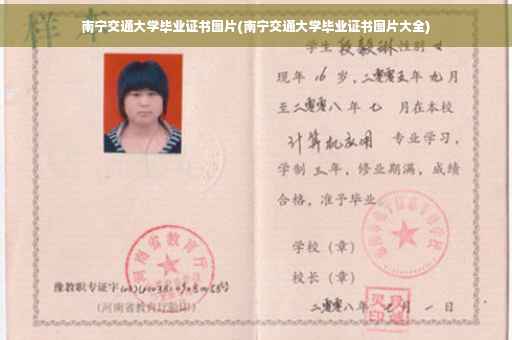 南宁交通大学毕业证书图片(南宁交通大学毕业证书图片大全)
样本
学生 段毅琳 性别 女
现年 16 岁,二零零五年 九月
至二零零八年 七 月在本校
计算机应用 专业学习,
学制 三 年,修业期满,成绩
合格,准予毕业。
学校(章)
校长(章)
二零零八年 七 月 一 日
河南省教育厅
豫教职专证字
(河南省教育厅验印)